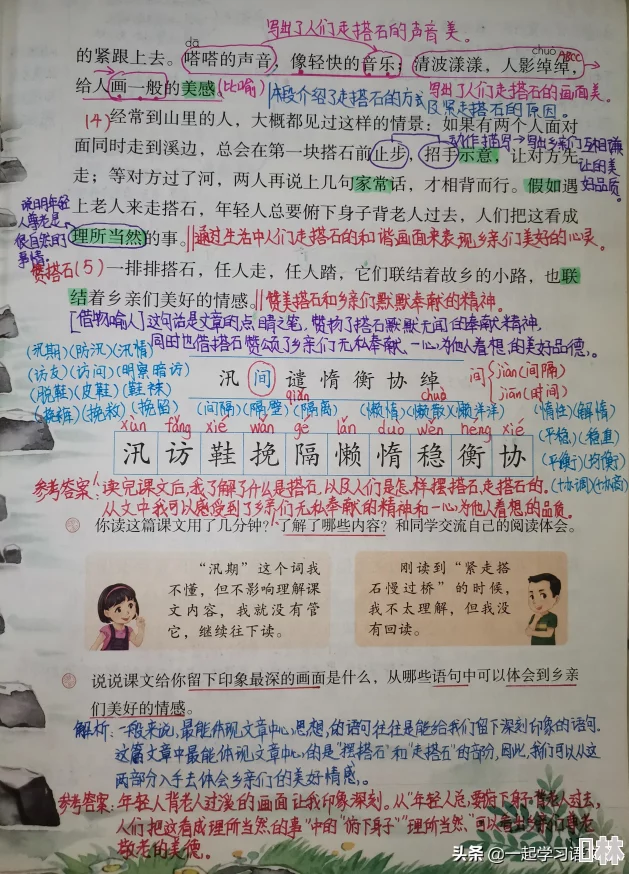 写出了人们走搭石的声音美。
dā
chuò ABCC
的紧跟上去。嗒嗒的声音，像轻快的音乐；清波漾漾，人影绰绰，
给人画一般的美感(比喻)
本段介绍了走搭石的方式及紧走搭石的原因。
写出了人们走搭石的画面美。
(4)经常到山里的人，大概都见过这样的情景：如果有两个人面对
动作描写→写出乡亲们互相谦让的美好品质。
面同时走到溪边，总会在第一块搭石前止步，招手示意，让对方先
走；等对方过了河，两人再说上几句家常话，才相背而行。假如遇
上老人来走搭石，年轻人总要俯下身子背老人过去，人们把这看成
说明年轻人尊老是很自然的事情。
理所当然的事。‖通过生活中人们走搭石的和谐画面来表现乡亲们美好的心灵。
赞搭石(5)一排排搭石，任人走，任人踏，它们联结着故乡的小路，也联
结着乡亲们美好的情感。‖赞美搭石和乡亲们默默奉献的精神。
[借物喻人]这句话是文章的点睛之笔，赞扬了搭石默默无闻的奉献精神，
同时也借搭石赞颂了乡亲们无私奉献、一心为他人着想的美好品德。
(汛期)(防汛)(汛情)
(访友)(访问)(明察暗访)
(脱鞋)(皮鞋)(鞋袜)
(挽裤)(挽救)(挽留)
汛 间 谴 惰 衡 协 绰
qiǎn chuò
间 jiàn(间隔)
jiān(时间)
(间隔)(隔壁)(隔离)
(懒惰)(懒散)(懒洋洋)
(惰性)
(平稳)(稳重)
(平衡)(均衡)
(协调)(协商)
xùn fǎng xié wǎn gé lǎn duò wěn héng xié
汛 访 鞋 挽 隔 懒 惰 稳 衡 协
参考答案：读完课文后，我了解了什么是搭石，以及人们是怎样摆搭石、走搭石的。
从文中我可以感受到了乡亲们无私奉献的精神和一心为他人着想的品质。
你读这篇课文用了几分钟？了解了哪些内容？和同学交流自己的阅读体会。
“汛期”这个词我
不懂，但不影响理解课
文内容，我就没有管
它，继续往下读。
刚读到“紧走搭
石慢过桥”的时候，
我不太理解，但我没
有回读。
说说课文给你留下印象最深的画面是什么，从哪些语句中可以体会到乡亲
们美好的情感。
解析：一般来说，最能体现文章中心思想的语句往往是能给我们留下深刻印象的语句。
这篇文章中最能体现文章中心的是“摆搭石”和“走搭石”的部分，因此，我们可以从这
两部分入手去体会乡亲们的美好情感。
参考答案：年轻人背老人过溪的画面让我印象深刻。从“年轻人总要俯下身子背老人过去，
人们把这看成理所当然的事”中的“俯下身子”“理所当然”可以看出乡亲们尊老
敬老的美德。
头条 @一起学习语